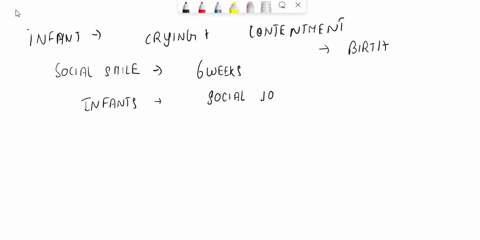 INFANT → CRYING + CONTENTMENT
→ BIRTH
SOCIAL SMILE → 6 WEEKS
INFANTS → SOCIAL JO